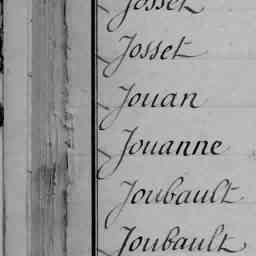 Josset
Josset
Jouan
Jouanne
Joubault
Joubault